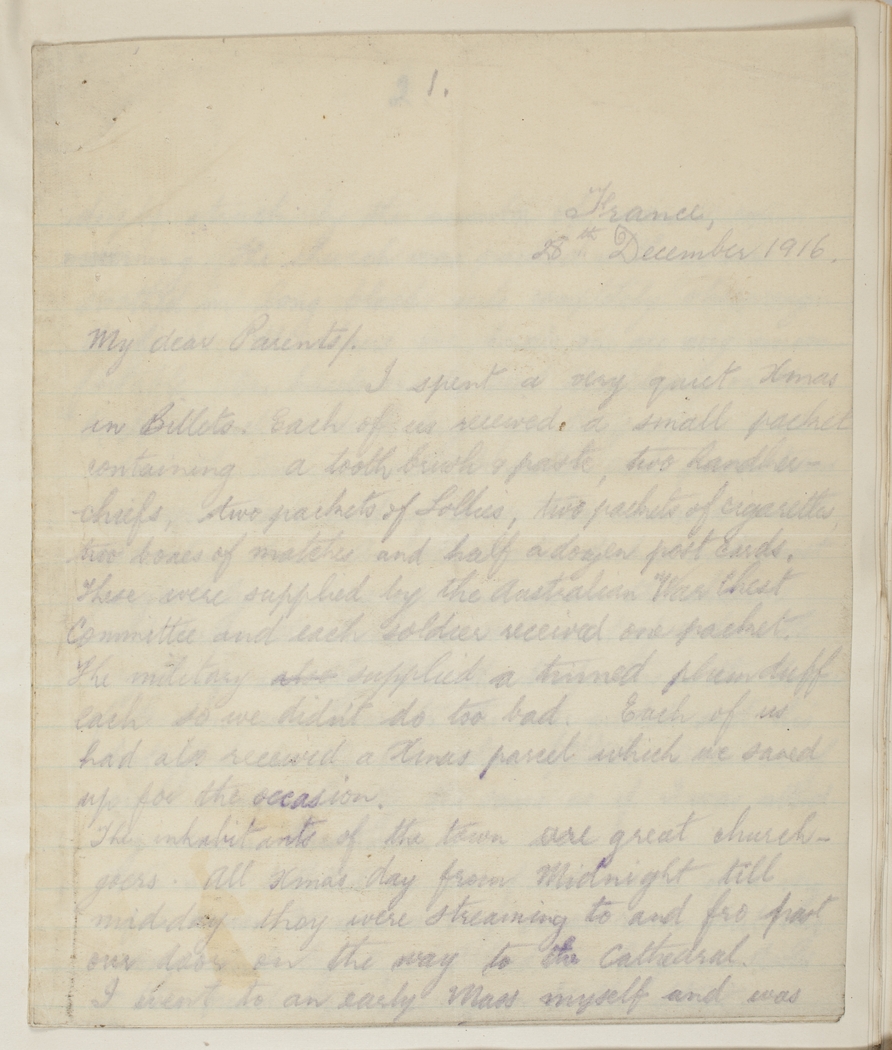 1.
France,
28th December 1916.
My dear Parents/.
I spent a very quiet Xmas
in Billets. Each of us received a small packet
containing a tooth brush & paste, two handker-
-chiefs, two packets of Lollies, two packets of cigarettes,
two boxes of matches and half a dozen post cards.
These were supplied by the Australian War Chest
Committee and each soldier received one packet.
The military also supplied a tinned plumduff
each so we didn't do too bad. Each of us
had also received a Xmas parcel which we saved
up for the occasion.
The inhabitants of the town are great church-
goers. All Xmas day from Midnight till
mid-day they were streaming to and fro past
our door on the way to the Cathedral.
I went to an early Mass myself and was